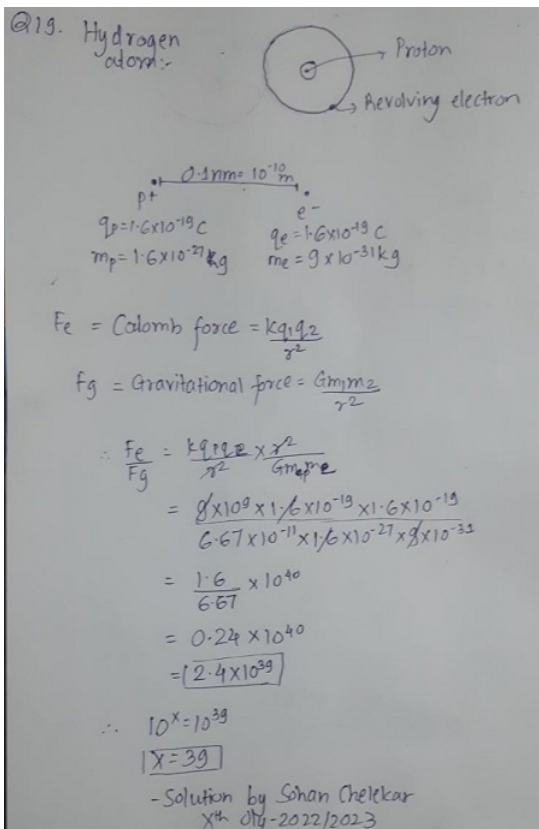 Q19. Hydrogen
atom:-
Proton
Revolving electron
0.1nm = 10⁻¹⁰m
p+
e-
qp=1.6×10⁻¹⁹C
qe=1.6×10⁻¹⁹C
mp=1.6×10⁻²⁷kg
me=9×10⁻³¹kg
Fe = Calomb force = kq₁q₂/r²
Fg = Gravitational force = Gm₁m₂/r²
∴ Fe/Fg = kq₁q₂/r² × r²/Gmpme
= 9×10⁹×1.6×10⁻¹⁹×1.6×10⁻¹⁹/6.67×10⁻¹¹×1.6×10⁻²⁷×9×10⁻³¹
= 1.6/6.67 ×10⁴⁰
= 0.24×10⁴⁰
= 2.4×10³⁹
∴ 10ˣ=10³⁹
x=39
-Solution by Sohan Chelekar
Xth
-2022/2023